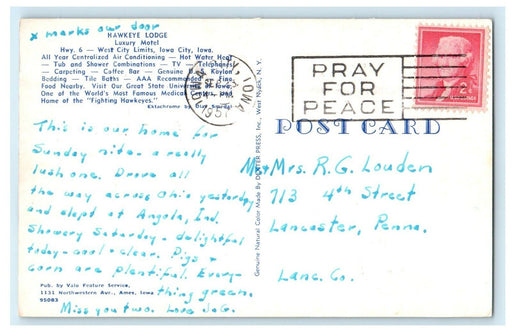 x marks our door
HAWKEYE LODGE
Luxury Motel
Hwy. 6 — West City Limits, Iowa City, Iowa.
All Year Centralized Air Conditioning — Hot Water Heat
— Tub and Shower Combinations — TV — Telephones
— Carpeting — Coffee Bar — Genuine Koylon
Bedding — Tile Baths — AAA Recommended — Fine
Food Nearby. Visit Our Great State University of Iowa,
One of the World's Most Famous Medical Centers, and
Home of the "Fighting Hawkeyes."
Ektachrome by
This is our home for
Sunday nite - a really
lush one. Drove all
the way across Ohio yesterday
and slept at Angola, Ind.
Showery Saturday - delightful
today - cool + clear. Pigs +
corn are plentiful. Every-
thing green.
Miss you two. Love J+G.
Pub. by Vale Feature Service,
1131 Northwestern Ave., Ames, Iowa
95083
Genuine Natural Color Made By DEXTER PRESS, Inc., West Nyack, N. Y.
IOWA
PM
PRAY
FOR
PEACE
POST CARD
Mr + Mrs. R. G. Louden
713 4th Street
Lancaster, Penna.
Lanc. Co.